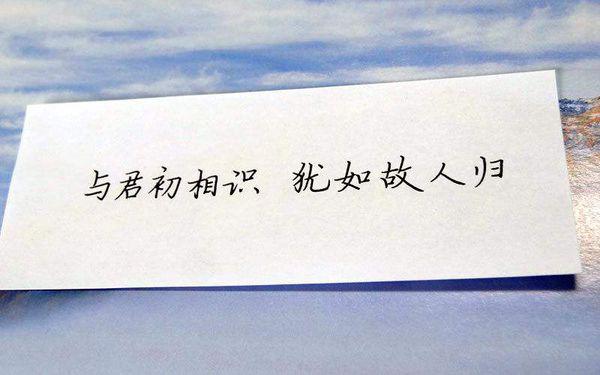 与君初相识、犹如故人归